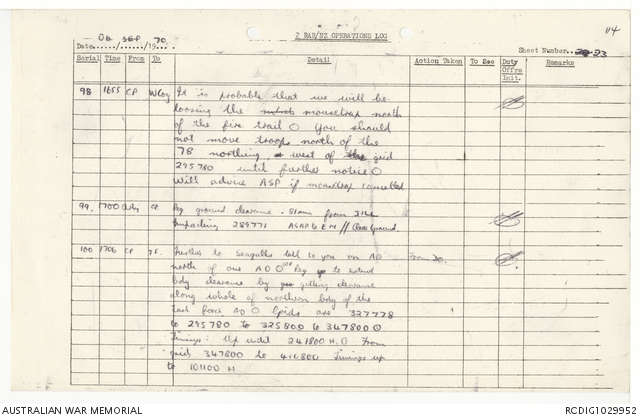 114
2 RAR/NZ OPERATIONS LOG
Date 06 / SEP / 19 70
Sheet Number 23
Serial Time From To Detail Action Taken To See Duty Offrs Init. Remarks
98 1655 CP W Coy It is probable that we will be
loosing the mousetrap north
of the fire trail O You should
not move troops north of the
78 northing west of grid
295780 until further notice O
Will advise ASP if mousetrap cancelled
99. 1700 CP Req ground clearance 81mm from
Impacting 289771 ASAP // Clear Ground.
100 1706 CP TF. Further to Seagulls talk to you on AO
north of our AO O Req to extend
bdy clearance by getting clearance
along whole of northern bdy of the
task force AO O Grids are 327778
to 295780 to 325800 to 347800 O
Timings: Up until 241800 H.O From
grids 347800 to 410800 Timings up
to 101100 H
AUSTRALIAN WAR MEMORIAL
RCDIG1029952